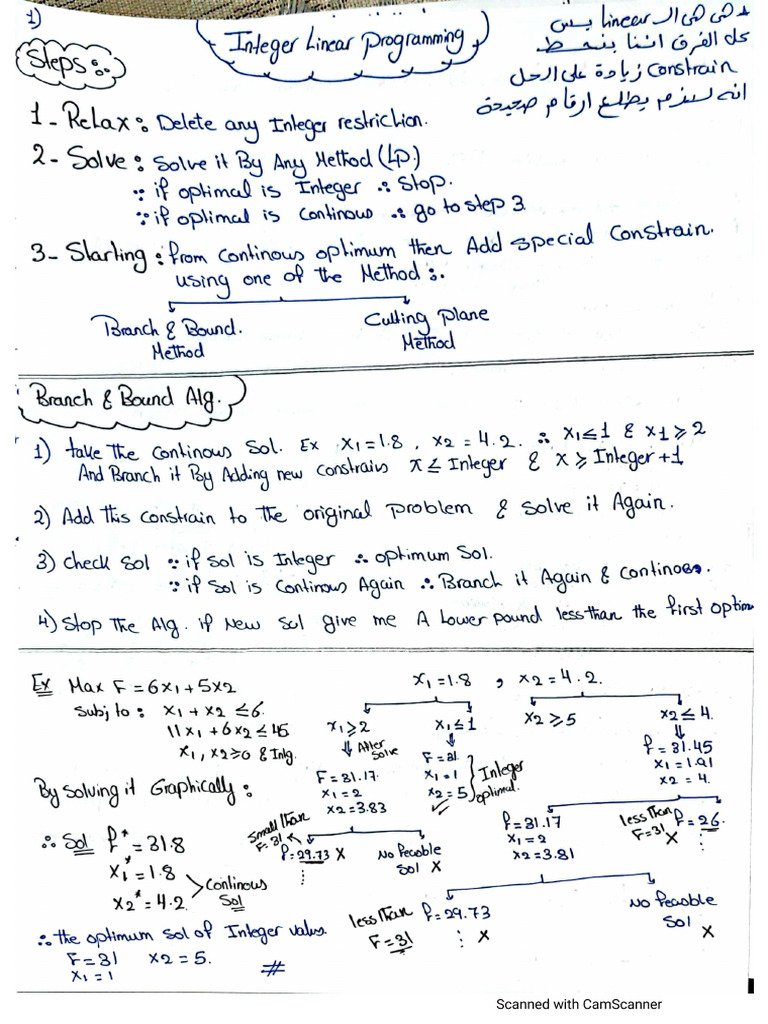 1)
Integer Linear Programming
* هي هي الـ Linear بس
كل الفرق اننا بنحط
Constrain زيادة على الحل
انه لازم يطلع ارقام صحيحة
Steps:.
1- Relax: Delete any Integer restriction.
2- Solve: Solve it By Any Method (LP.)
∵ if optimal is Integer ∴ Stop.
∵ if optimal is Continous ∴ go to step 3
3- Starting: from Continous optimum then Add special Constrain.
using one of the Method:.
Branch & Bound. Method
Cutting Plane Method
Branch & Bound Alg.
1) take The Continous Sol. Ex X1=1.8 , X2=4.2. ∴ X1≤1 & X1≥2
And Branch it By Adding new Constrains X≤Integer & X≥Integer+1
2) Add this Constrain to the original Problem & Solve it Again.
3) Check Sol ∵ if Sol is Integer ∴ optimum Sol.
∵ if Sol is Continous Again ∴ Branch it Again & Continoes.
4) Stop The Alg. if New Sol give me A Lower Pound less than the first optim
Ex Max F=6X1+5X2
Subj to: X1+X2≤6.
11X1+6X2≤45
X1,X2≥0 & Intg.
By Solving it Graphically:
∴ Sol F*=31.8
X1*=1.8
X2*=4.2
Continous Sol
X1=1.8 , X2=4.2.
X1≥2
After Solve
F=31.17
X1=2
X2=3.83
X1≤1
F=31
X1=1
X2=5
Integer optimal.
Small than F=31
F=29.73 X
No Feasible Sol X
X2≥5
X2≤4.
F=31.45
X1=1.91
X2=4.
F=31.17
X1=2
X2=3.81
less Than F=31
F=26.
X
less Than F=31
F=29.73
X
No Feasible Sol
X
∴ the optimum Sol of Integer value.
F=31 X2=5.
X1=1 #
Scanned with CamScanner